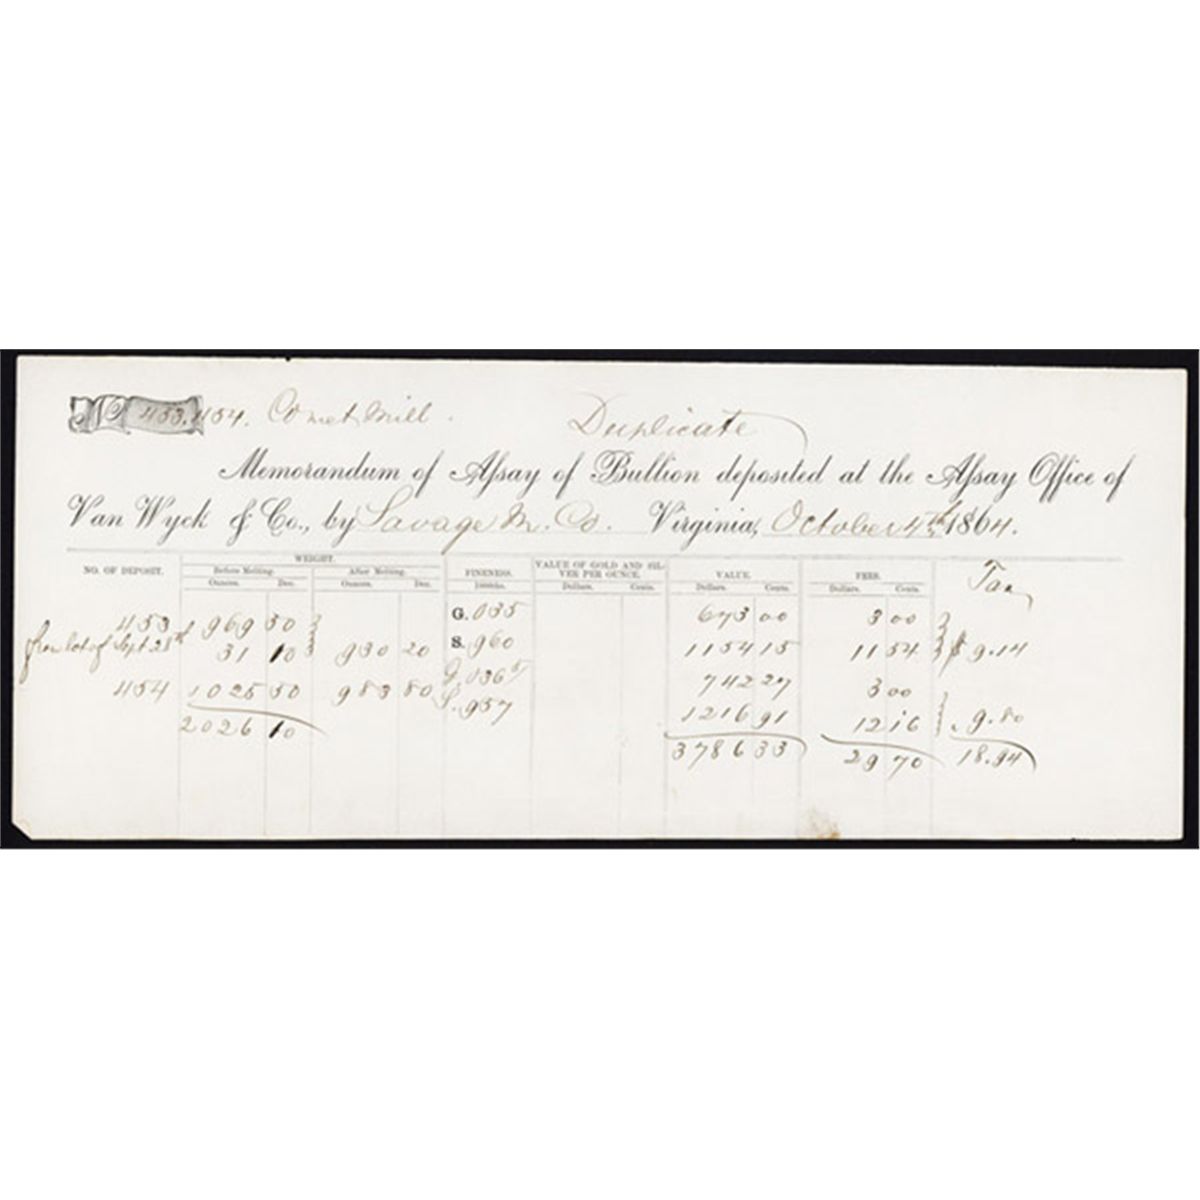 No 453, 454. Comet Mill. Duplicate
Memorandum of Aſsay of Bullion deposited at the Aſsay Office of
Van Wyck & Co., by Savage M. Co. Virginia, October 4th, 1864.
NO. OF DEPOSIT. WEIGHT. FINENESS. VALUE OF GOLD AND SIL- VALUE. FEES. Tax
Before Melting. After Melting. VER PER OUNCE.
Ounces. Dec. Ounces. Dec. Dollars. Cents. Dollars. Cents. Dollars. Cents.
453 969 50 G. 035 673 00 3 00
from lot of Sept 28th 31 10 930 20 S. 960 1154 15 11 54 $ 9.14
G. 036 5 742 27 3 00
454 1025 50 983 80 S. 957 1216 91 12 16 9.80
2026 10 3786 33 29 70 18.94